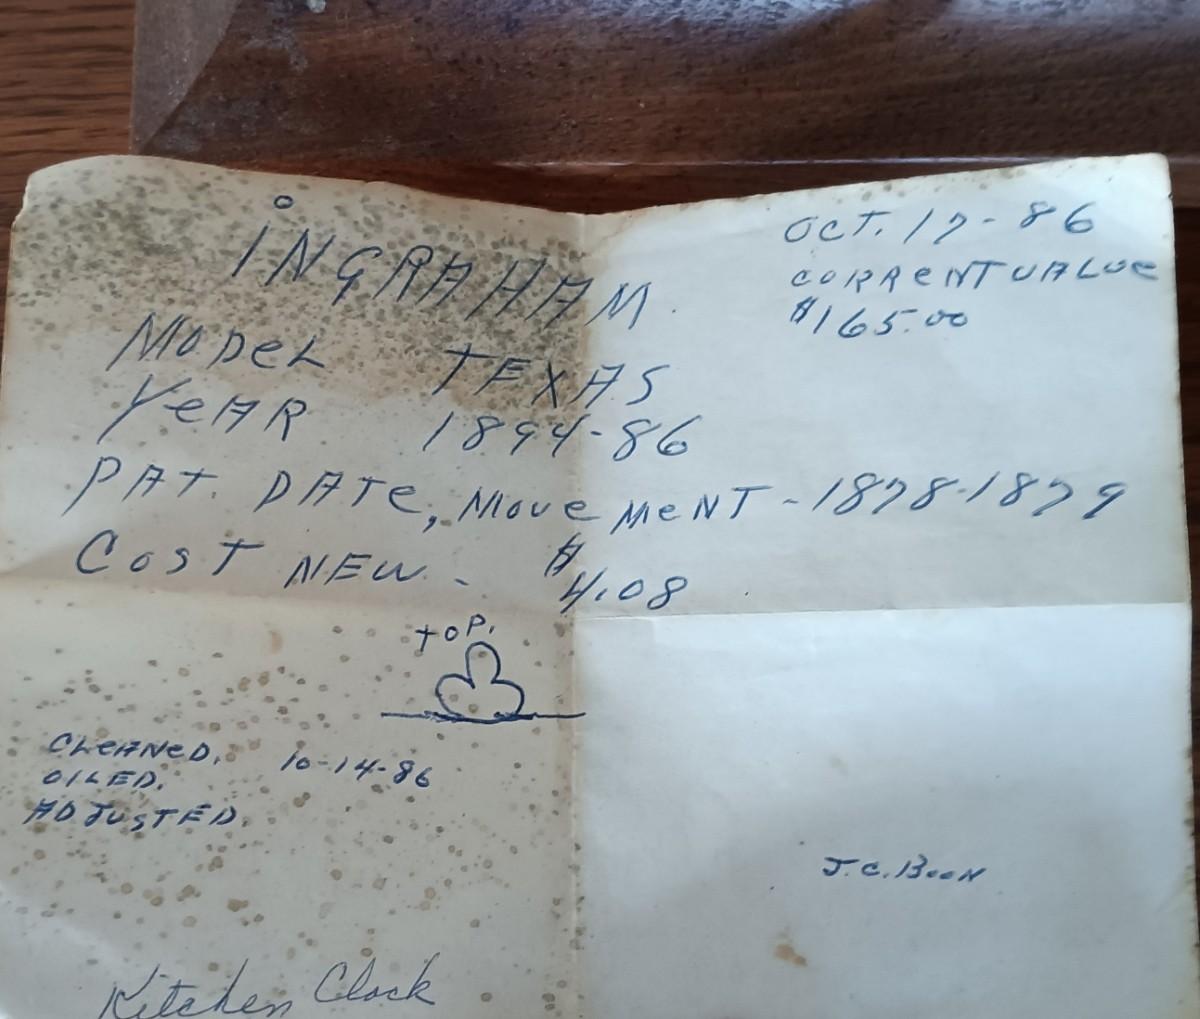 iNGRAHAM
OCT. 17-86
CORRENT VALUE
$165.00
MODeL TEXAS
YeAR 1894-86
PAT. DATe, MoveMeNT - 1878-1879
COST NEW - $4.08
TOP.
CLeANeD. 10-14-86
OILED.
ADJUSTED.
J.C. Boon
Kitchen Clock